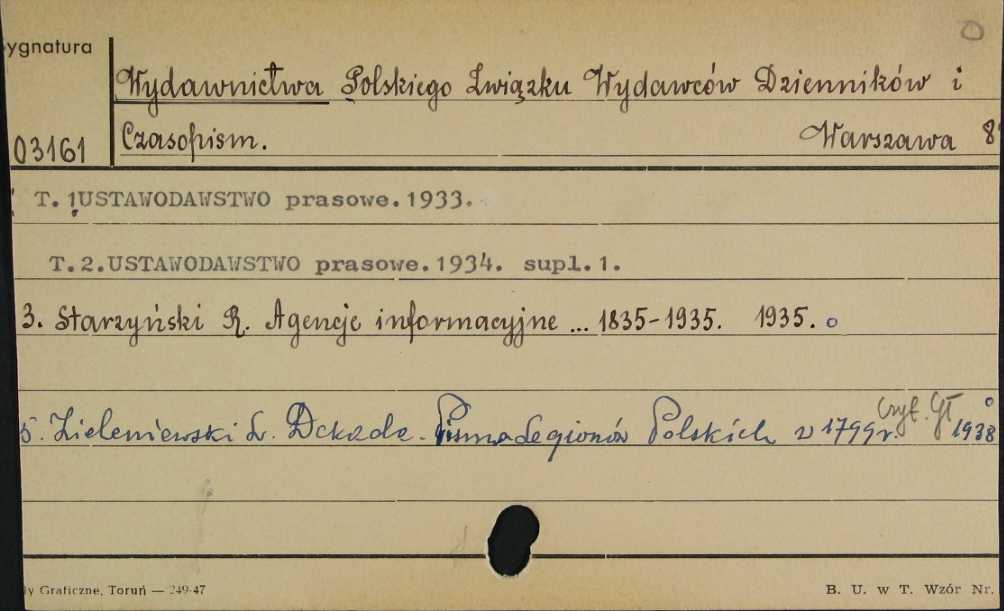 ygnatura
Wydawnictwa Polskiego Związku Wydawców Dzienników i
03161 Czasopism. Warszawa 8
T. 1 USTAWODAWSTWO prasowe. 1933.
T. 2. USTAWODAWSTWO prasowe. 1934. supl. 1.
3. Starzyński R. Agencje informacyjne ... 1835-1935. 1935.
czyt. Gł
5. Zieleniewski L. Dekada. Pismo Legionów Polskich z 1799 r. 1938
Graficzne, Toruń — 249-47 B. U. w T. Wzór Nr.